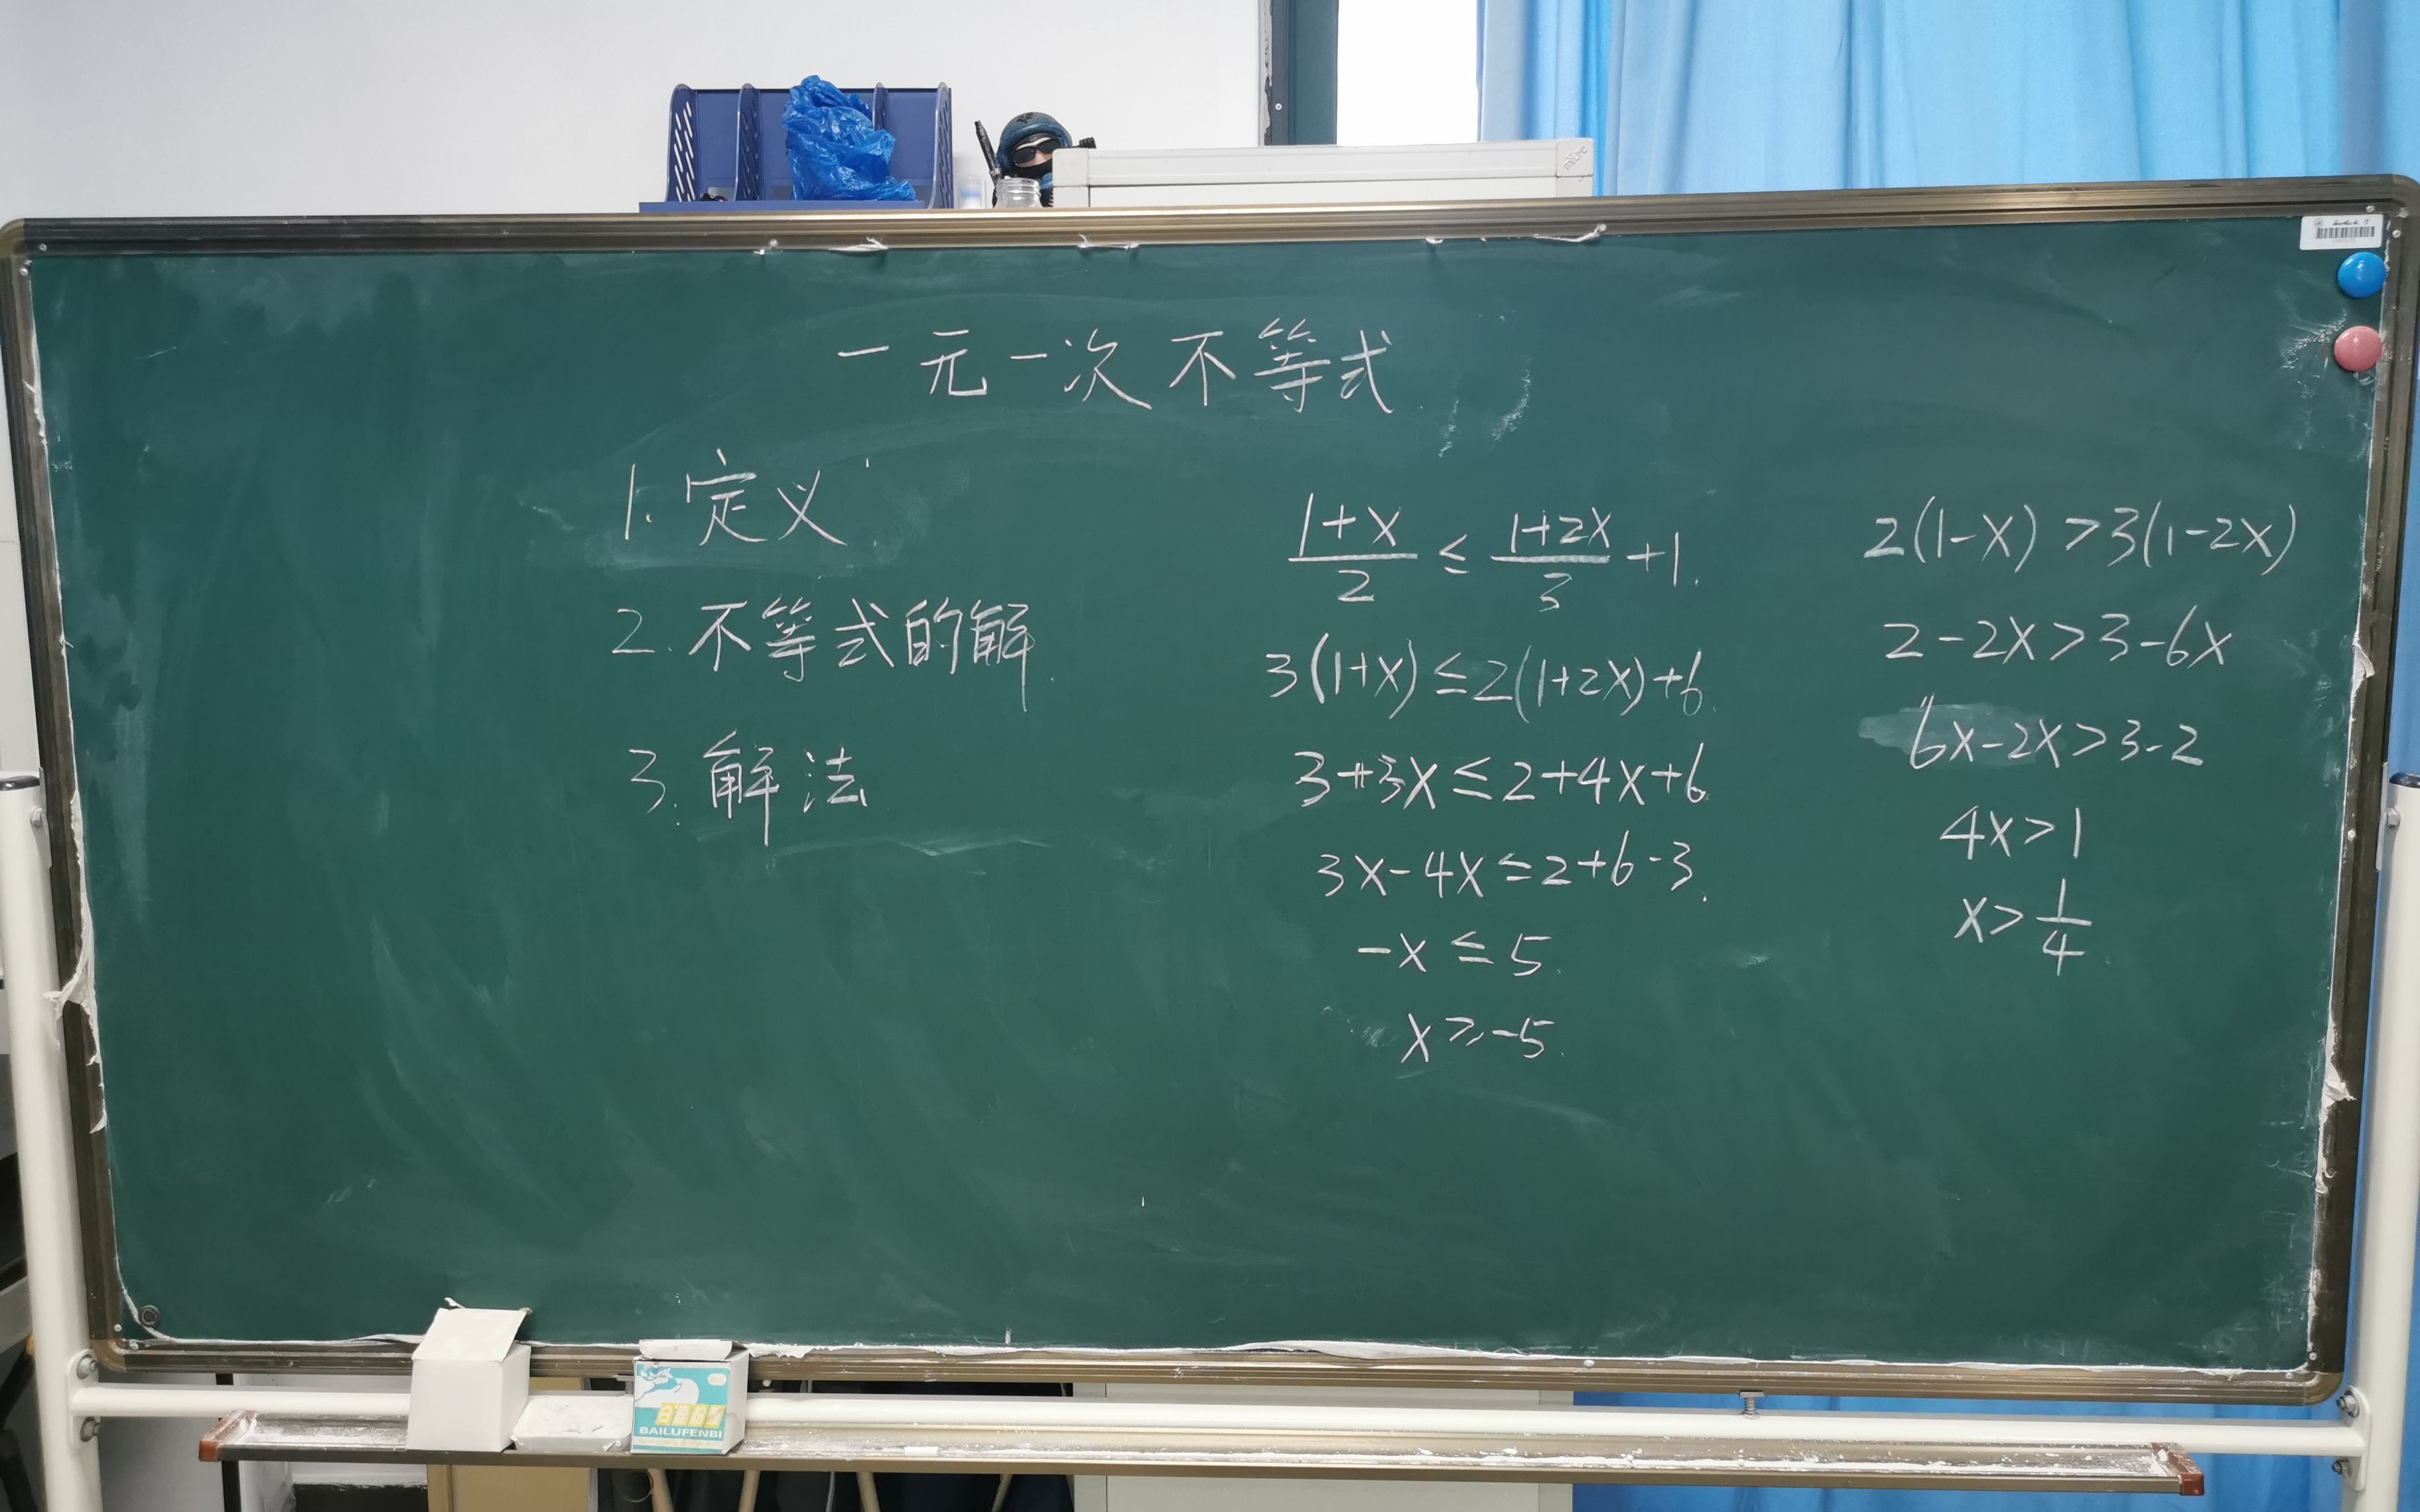 一元一次不等式
1. 定义
2. 不等式的解
3. 解法
(1+x)/2 ≤ (1+2x)/3 +1
3(1+x)≤2(1+2x)+6
3+3x≤2+4x+6
3x-4x≤2+6-3
-x≤5
x≥-5
2(1-x)>3(1-2x)
2-2x>3-6x
6x-2x>3-2
4x>1
x>1/4
BAILUFENBI